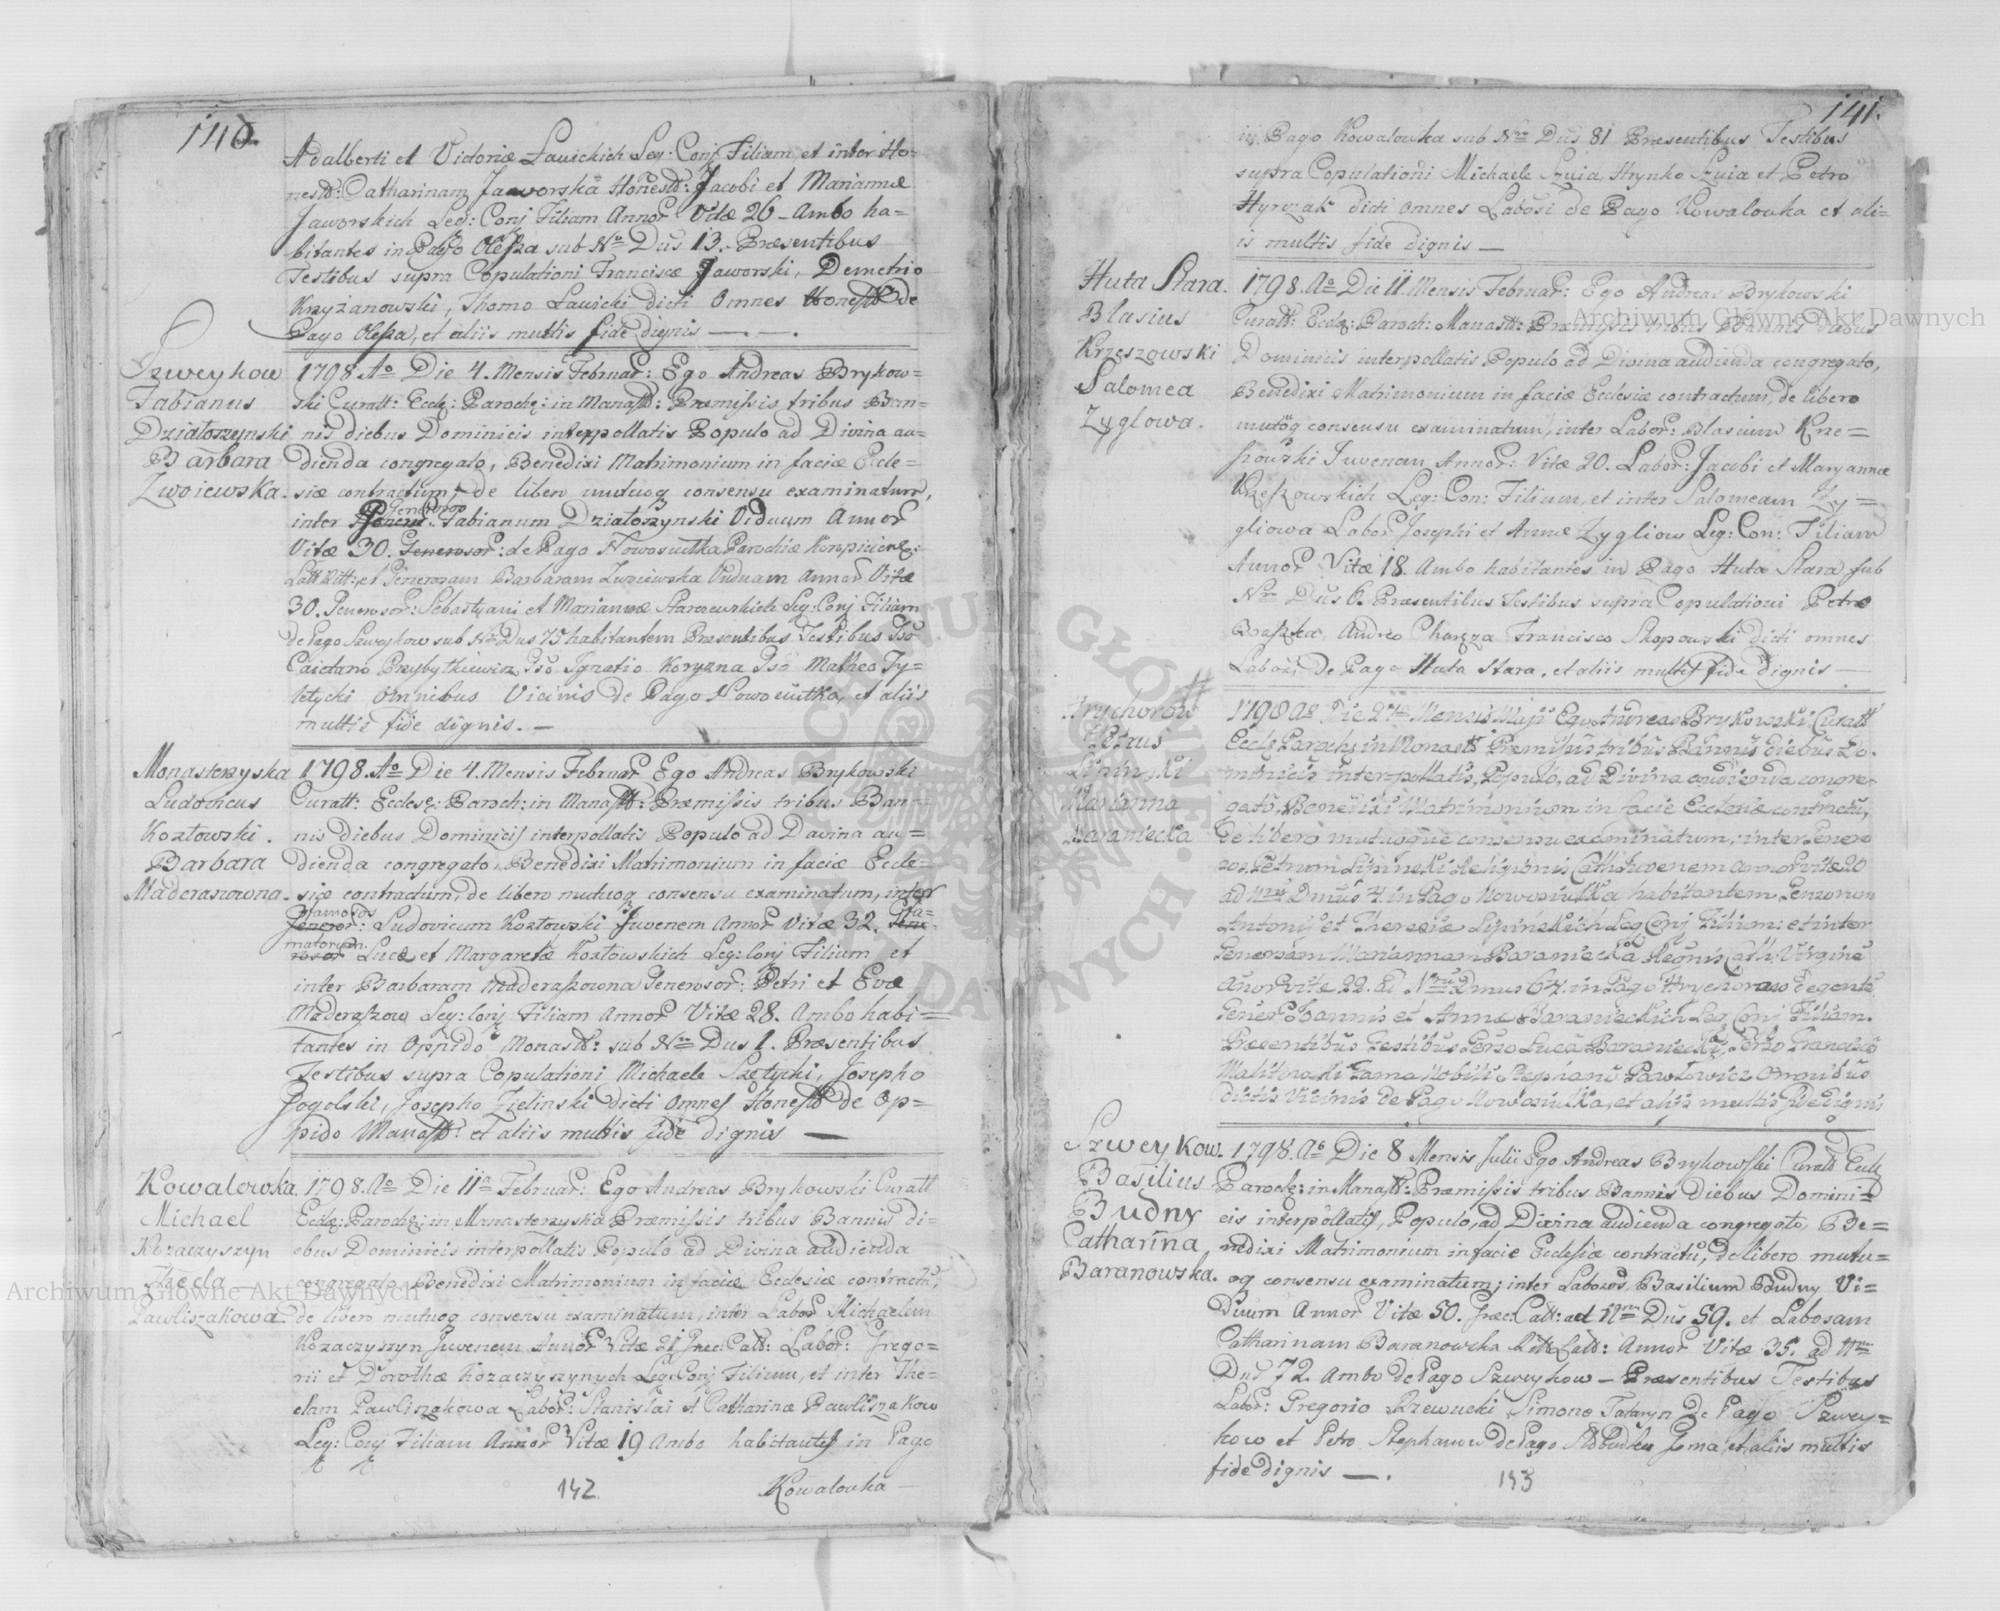 140.
Adalberti et Victoriæ Ławickich Leg: Conj Filiam, et inter Ho-
nest: Catharinam Jaworska Honest: Jacobi et Mariannæ
Jaworskich Leg: Conj Filiam Annor Vitæ 26 - Ambo ha-
bitantes in Pago Olesza sub Nro Dus 13. Præsentibus
Testibus supra Copulationi Francisce Jaworski, Demetrio
Krzyżanowski, Thomo Ławicki dicti Omnes Honest de
Pago Olesza, et aliis multis fide dignis — — .
Szweykow
Fabianus
Działoszynski
Barbara
Zwoiewska.
1798 Ao Die 4. Mensis Februar: Ego Andreas Brykow-
ski Curatt: Eccle: Paroche: in Manast: Præmissis tribus Ban-
nis diebus Dominicis interpollatis Populo ad Divina au-
dienda congregato, Benedixi Matrimonium in faciæ Eccle-
siæ contractum, de libero mutuoq consensu examinatum,
inter Generoso Fabianum Działoszynski Viduum Annor
Vitæ 30. Generosor: de Pago Nowosiułka Parochiæ
Latt Ritt: et Generosam Barbaram Zwoiewska Viduam Annor Vitæ
30. Generosor: Sebastyani et Mariannæ Starzewskich Leg: Conj Filiam
de Pago Szweykow sub Nro Dus 75 habitantem Præsentibus Testibus Gso
Caietano Przybytkiewicz Gso Ignatio Koryzna Gso Matheo Ty-
letycki omnibus Vicinis de Pago Nowosiułka, et aliis
multis fide dignis. —
Monasterzyska
Ludovicus
Kozłowski.
Barbara
Maderaszowna.
1798. Ao Die 4. Mensis Februar Ego Andreas Brykowski
Curatt: Eccles: Paroch: in Manast: Præmissis tribus Ban-
nis diebus Dominicis interpollatis Populo ad Davina au-
dienda congregato, Benedixi Matrimonium in faciæ Eccle-
siæ contractum, de libero mutuoq consensu examinatum, inter
Famosos
Generor: Ludovicum Kozłowski Juvenem Annor Vitæ 32. Fa-
matorum
Lucæ et Margaretæ Kozłowskich Leg: Conj Filium et
inter Barbaram Maderaszowna Generosor: Petri et Evæ
Maderaszow Leg: Conj Filiam Annor Vitæ 28. Ambo habi-
tantes in Oppido Monast: sub Nro Dus 1. Præsentibus
Testibus supra Copulationi Michaele Szetycki, Josepho
Gogolski, Josepho Zielinski dicti Omnes Honest de Op-
pido Manast: et aliis multis fide dignis —
Kowalowka
Michael
Kozaczyszyn
Thecla
Pawliszakowa.
1798. Ao Die 11a Februar: Ego Andreas Brykowski Curatt
Eccle: Paroche: in Monasterzyska Præmissis tribus Bannis di-
ebus Dominicis interpollatis Populo ad Divina audienda
congregato Benedixi Matrimonium in faciæ Ecclesiæ contractu,
de libero mutuoq consensu examinatum, inter Labor Michaelem
Kozaczyszyn Juvenem Annor Vitæ 21 Græc: Catt: Labor: Grego-
rii et Dorothæ Kozaczyszynych Leg: Conj Filium, et inter The-
clam Pawliszakowa Labor: Stanislai et Catharinæ Pawliszakow
Leg: Conj Filiam Annor Vitæ 19 Ambo habitantes in Pago
142
Kowalowka —
141.
in Pago Kowalowka sub Nro Dus 81 Præsentibus Testibus
supra Copulationi Michaele Szuia, Hrynko Szuia et Petro
Hyrczak dicti omnes Labosi de Pago Kowalowka et ali-
is multis fide dignis —
Huta Stara.
Blasius
Krzeszowski
Salomea
Zyglowa.
1798. Ao Die 11 Mensis Februar: Ego Andreas Brykowski
Curatt: Eccle: Paroch: Manast: Præmissis tribus Bannis diebus
Dominicis interpollatis Populo ad Divina audienda congregato,
Benedixi Matrimonium in faciæ Ecclesiæ contractum, de libero
mutuoq consensu examinatum, inter Labor: Blasium Krze-
szowski Juvenem Annor: Vitæ 20. Labor: Jacobi et Maryannæ
Krzeszowskich Leg: Con: Filium, et inter Salomeam Zy-
gliowa Labor Josephi et Annæ Zygliow Leg: Con: Filiam
Annor Vitæ 18. Ambo habitantes in Pago Huta Stara sub
Nro Dus 6. Præsentibus Testibus supra Copulationi Petro
Andreo Francisco Skopowski dicti omnes
Labosi de Pago Huta Stara, et aliis multis fide dignis —
Hrychorow
Petrus
Lipinski
Marianna
Baraniecka
1798 Ao Die 27ma Mensis Maji Ego Andreas Brykowski Curatt
Eccle Paroche in Monast Præmissis tribus Bannis diebus Do-
minicis interpollatis, Populo, ad Divina audienda congre-
gato, Benedixi Matrimonium in facie Ecclesiæ contractu,
de libero mutuoque consensu examinatum, inter Genero
zos, Petrum Lipinski Religionis Cath: Juvenem annor vitæ 20
ad Nrm Dmus 4. in Pago Nowosiulka habitantem, Generorum
Antonij et Theresiæ Lipinskich Leg Conj Filium: et inter
Generosam Mariannam Baraniecka Relgnis Cath: Virgine
anor vitæ 22. ad Nrum Dmus 64. in Pago Hrychorow degente
Gener Johannis et Annæ Baranieckich Leg Conj Filiam.
Præsentibus Testibus Gerso Luca Baraniecki, Gerso Francisco
Malinowski Fama Nobili Stephano Pawłowicz omnibus
dictis Vicinis de Pago Nowosiulka, et alijs multis fide dignis
Szweykow.
Basilius
Budny
Catharina
Baranowska.
1798. Ao Die 8 Mensis Julii Ego Andreas Brykowski Curatt Eccle
Paroche: in Manast: Præmissis tribus Bannis Diebus Domini-
cis interpollatis, Populo, ad Divina audienda congregato, Be-
nedixi Matrimonium in facie Ecclesiæ contractu, de libero mutu-
oq consensu examinatum; inter Laboros Basilium Budny Vi-
duum Annor Vitæ 50. Græc: Catt: ad Nrm Dus 59. et Labosam
Catharinam Baranowska Ritt Latt: Annor Vitæ 35. ad Nrm
Dus 72. Ambo de Pago Szweykow — Præsentibus Testibus
Labor: Gregorio Rzewucki, Simone Tataryn de Pago Szwey-
kow et Petro Stephanow de Pago et aliis multis
fide dignis — .
143
Archiwum Główne Akt Dawnych
Archiwum Główne Akt Dawnych
ARCHIWUM GŁÓWNE AKT DAWNYCH